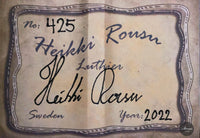 No: 425
Heikki Rousu
Luthier
Heikki Rousu
Sweden Year: 2022